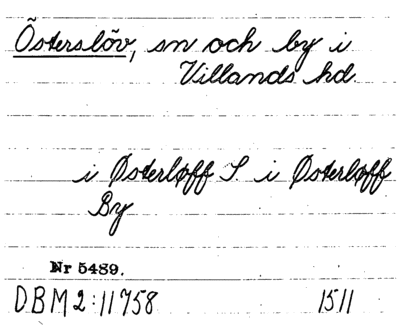 Österslöv, sn och by i
Villands hd.
i Østerløff S. i Østerløff
By
Nr 5489.
DBM2:11758 1511